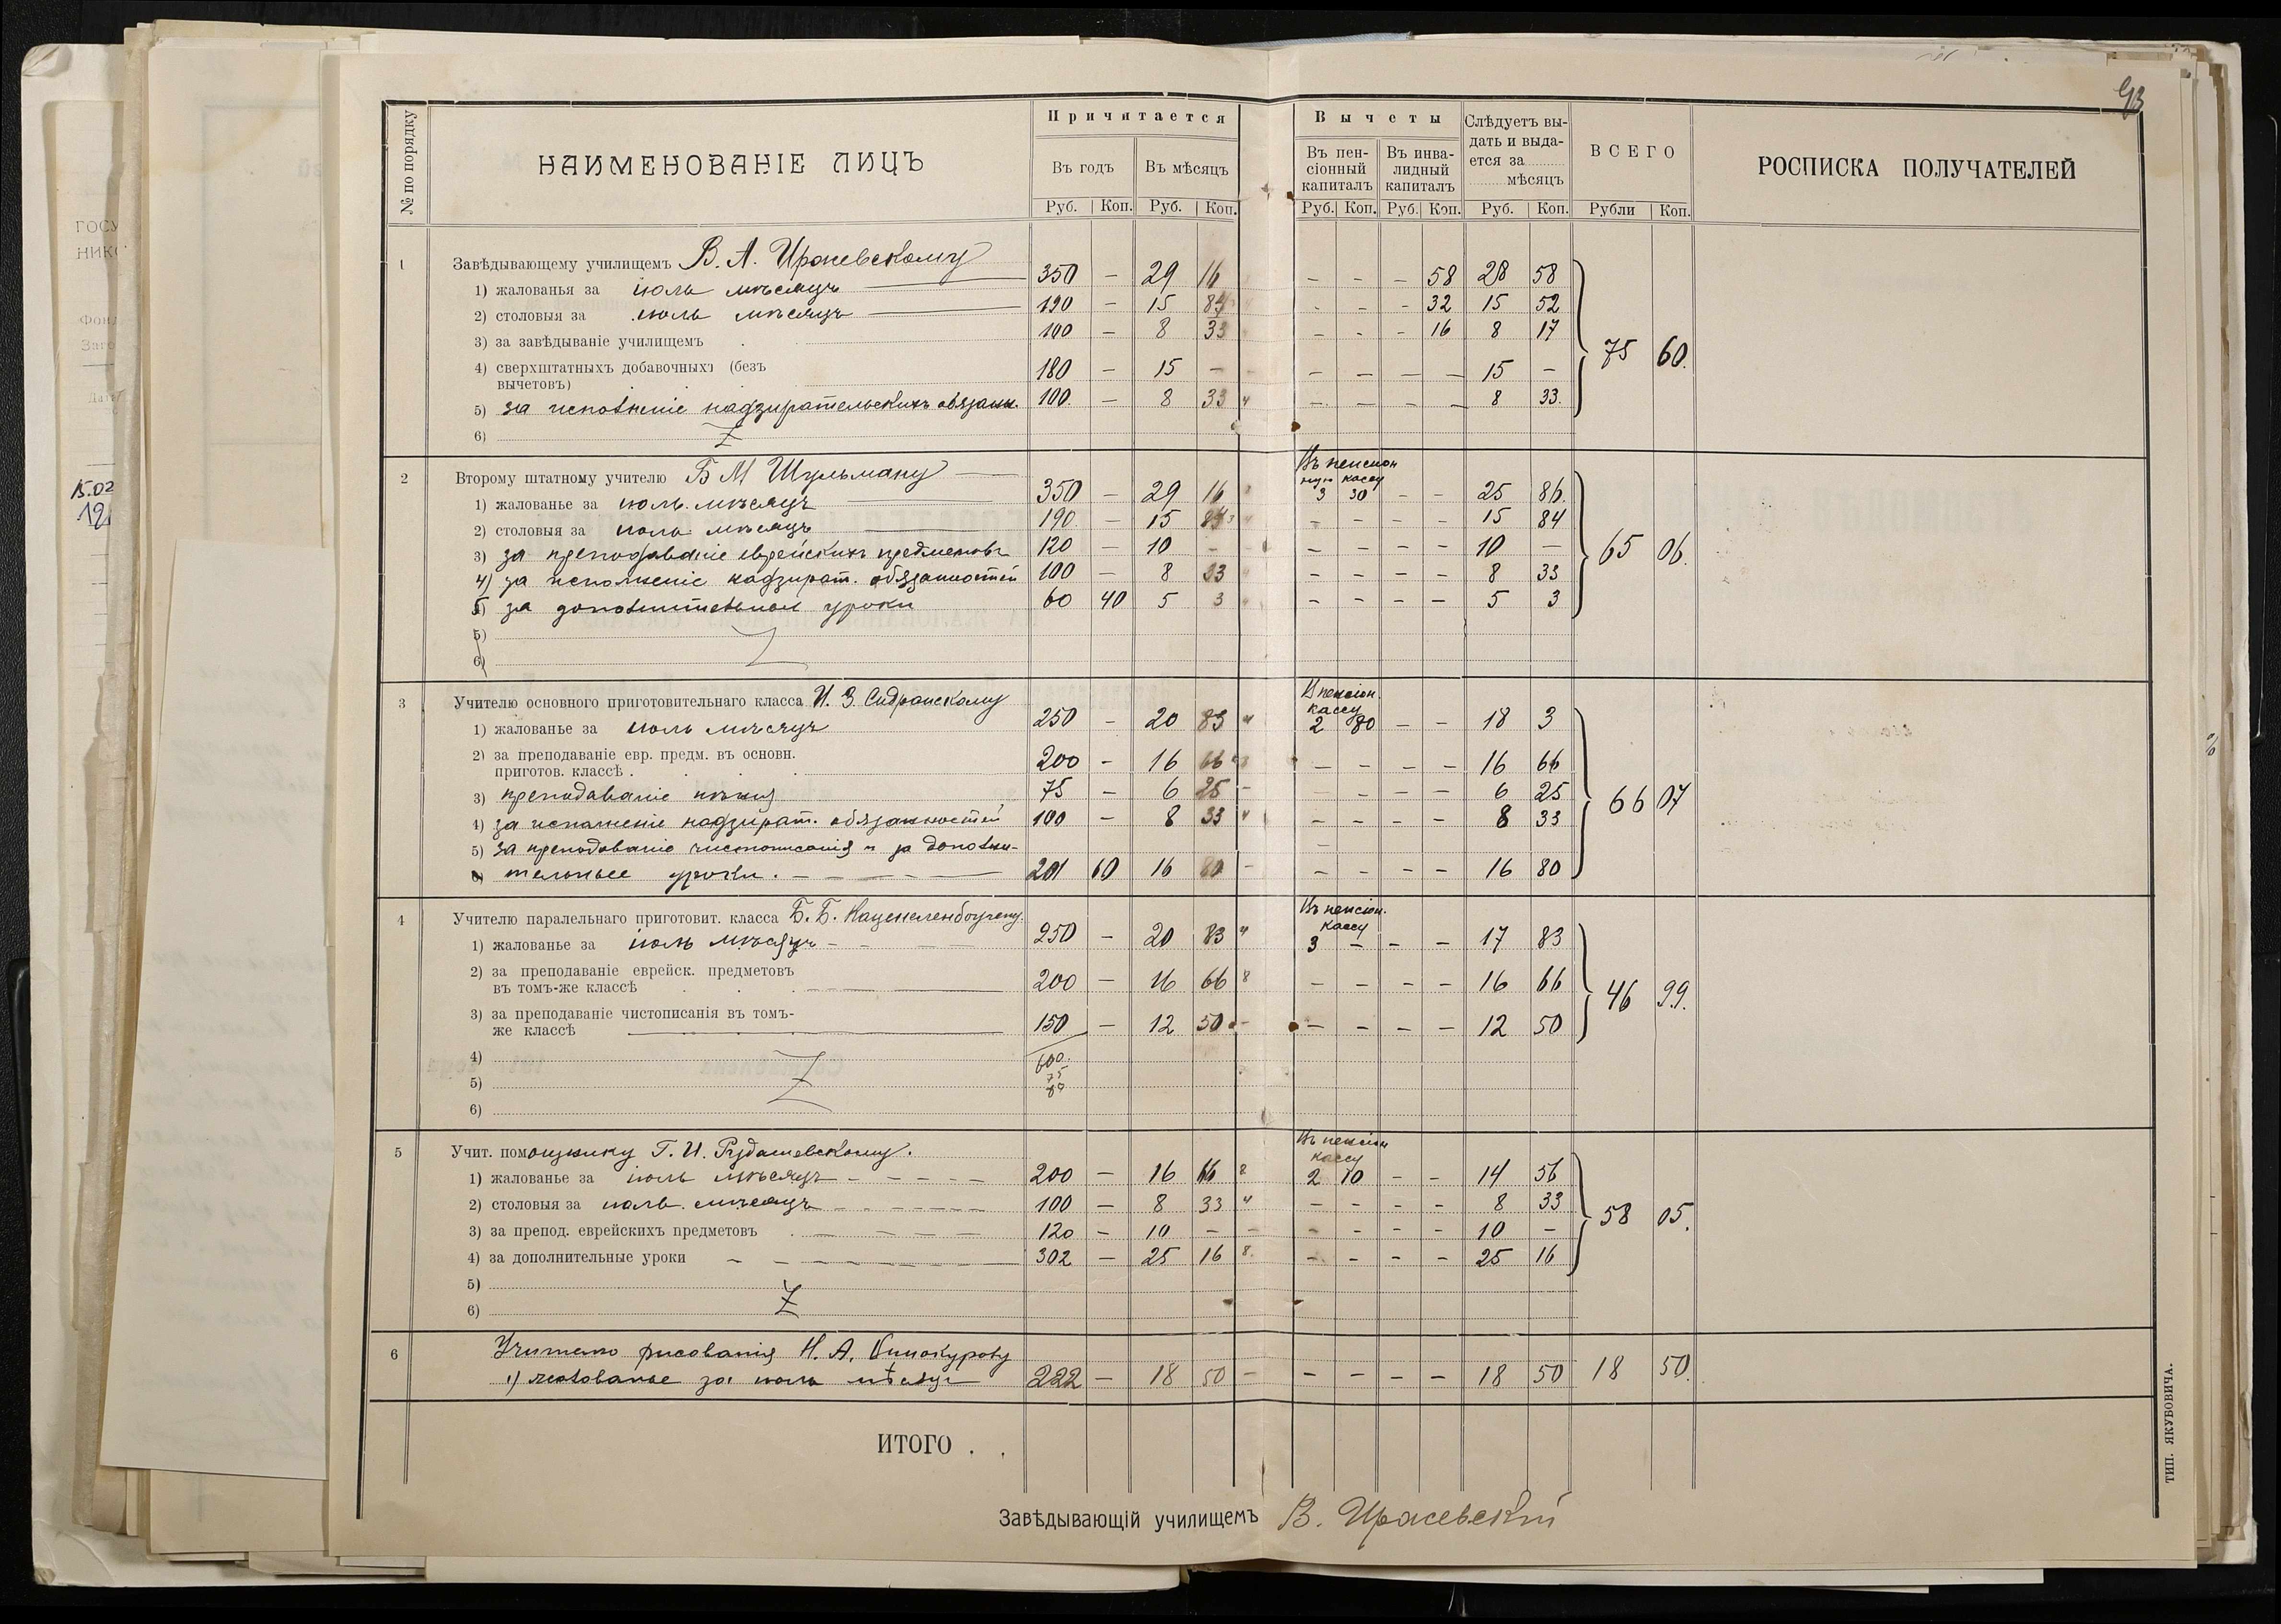 93
№ по порядку
НАИМЕНОВАНІЕ ЛИЦЪ
Причитается
Въ годъ
Въ мѣсяцъ
Руб. Коп. Руб. Коп.
Вычеты
Въ пен-
сіонный
капиталъ
Въ инва-
лидный
капиталъ
Руб. Коп. Руб. Коп.
Слѣдуетъ вы-
дать и выда-
ется за
мѣсяцъ
Руб. Коп.
ВСЕГО
Рубли Коп.
РОСПИСКА ПОЛУЧАТЕЛЕЙ
1 Завѣдывающему училищемъ В. А.
1) жалованья за іюль мѣсяцъ 350 — 29 16 — — — 58 28 58
2) столовыя за іюль мѣсяцъ 190 — 15 84 - - - 32 15 52
3) за завѣдываніе училищемъ 100 — 8 33 - - - 16 8 17
75 60.
4) сверхштатныхъ добавочныхъ (безъ
вычетовъ) 180 — 15 — — — — — 15 —
5) за исполненіе надзирательскихъ обязанн. 100. — 8 33 4 — — — — 8 33.
6)
2 Второму штатному учителю Б М Шульману
Въ пенсион
ную кассу
1) жалованье за іюль. мѣсяцъ 350 — 29 16 3 30 — — 25 86.
2) столовыя за іюль мѣсяцъ 190 — 15 84 — — — — 15 84
3) за преподаваніе еврейскихъ предметовъ 120 — 10 — — — — — 10 —
65 06.
4) за исполненіе надзират. обязанностей 100 — 8 33 — — — — 8 33
5) за дополнительные уроки 60 40 5 3 — — — — 5 3
5)
6)
3 Учителю основного приготовительнаго класса И. З. Сидранскому
В пенсіон.
кассу
1) жалованье за іюль мѣсяцъ 250 — 20 83 4 2 80 — — 18 3
2) за преподаваніе евр. предм. въ основн.
приготов. классѣ 200 — 16 66 8 — — — — 16 66
3) преподаваніе пѣнія 75 — 6 25 — — — — 6 25
66 07
4) за исполненіе надзират. обязанностей 100 — 8 33 4 — — — — 8 33
5) за преподованіе чистописанія и за дополни-
6) тельные уроки. 201 60 16 80 — — — — — 16 80
4 Учителю паралельнаго приготовит. класса Б. Б. Каценеленбогену.
Въ пенсіон.
кассу
1) жалованье за іюль мѣсяцъ 250 — 20 83 4 3 — — — 17 83
2) за преподаваніе еврейск. предметовъ
въ томъ-же классѣ 200 — 16 66 8 — — — — 16 66
46 99.
3) за преподаваніе чистописанія въ томъ-
же классѣ 150 — 12 50 — — — — — 12 50
4) 600.
5) 75
6)
5 Учит. помощнику Г. И. Рудашевскому.
Въ пенсіон
кассу
1) жалованье за іюль мѣсяцъ 200 — 16 66 8 2 10 — — 14 56
2) столовыя за іюль. мѣсяцъ 100 — 8 33 4 — — — — 8 33
58 05.
3) за препод. еврейскихъ предметовъ 120 — 10 — — — — — — 10 —
4) за дополнительные уроки 302 — 25 16 8. — — — — 25 16
5)
6)
6 Учителю рисованія Н. А. Винокурову
1) жалованье за іюль мѣсяцъ 222 — 18 50 — — — — — 18 50 18 50.
ИТОГО . .
Завѣдывающій училищемъ В.
ТИП. ЯКУБОВИЧА.
15.02